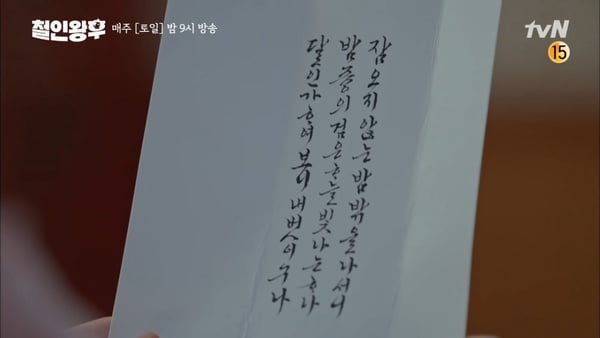 철인왕후 매주 [토일] 밤 9시 방송
tvN
15
잠 오지 않는 밤 밖을 나서니
밤중의 검은 ᄒᆞ늘 빛나는 ᄒᆞ나
달인가 ᄒᆞ여 보니 내 벗이구나